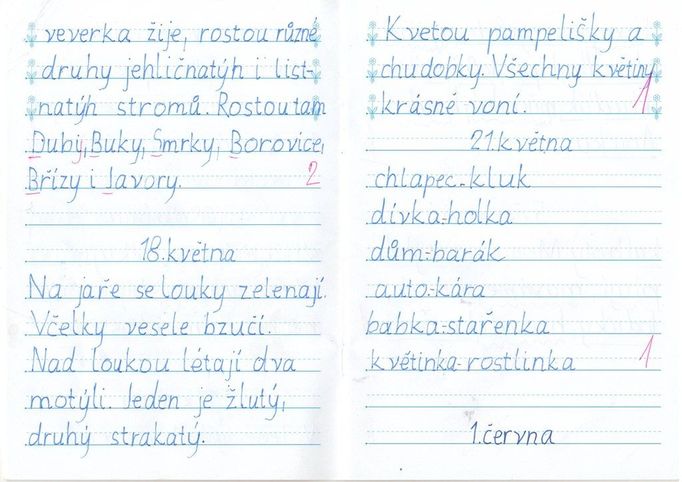 veverka žije, rostou různé
druhy jehličnatýh i list-
natýh stromů. Rostou tam
Duby, Buky, Smrky, Borovice,
Břízy i Javory.
2
18. května
Na jaře se louky zelenají.
Včelky vesele bzučí.
Nad loukou létají dva
motýli. Jeden je žlutý,
druhý strakatý.
Kvetou pampelišky a
chudobky. Všechny květiny
krásné voní.
1
21. května
chlapec-kluk
dívka-holka
dům-barák
auto-kára
babka-stařenka
květinka-rostlinka
1
1. června